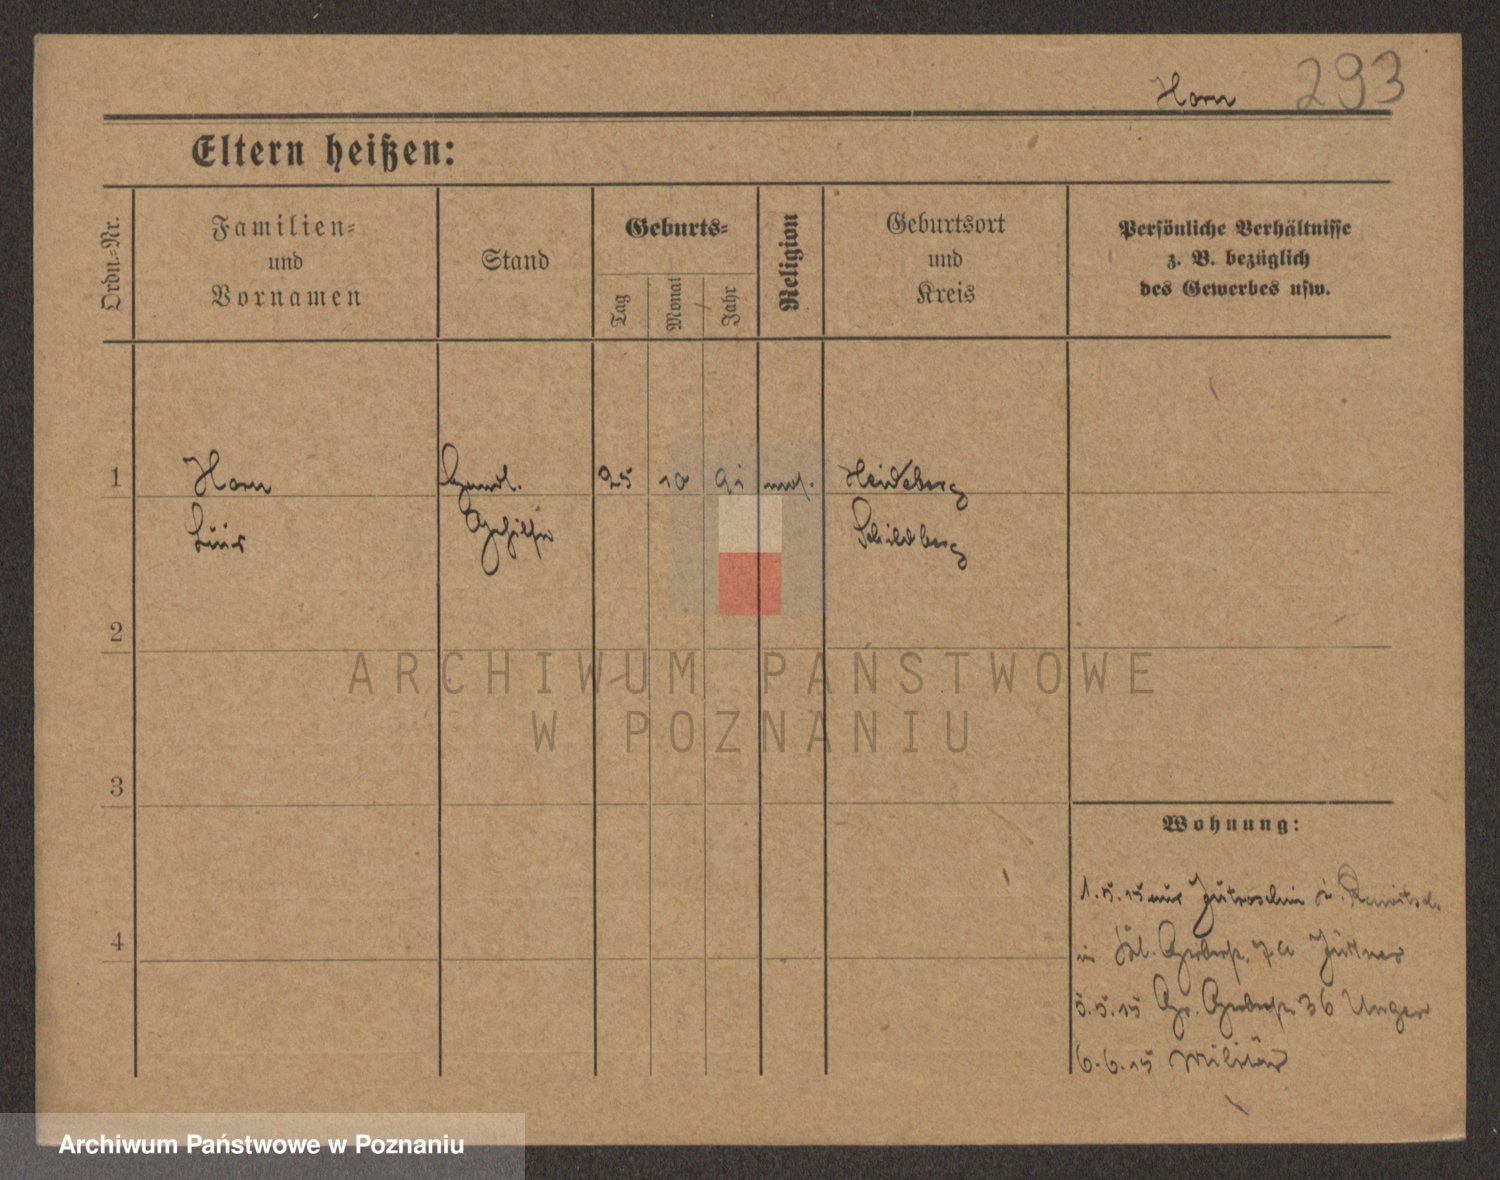 Horn 293
Eltern heißen:
Ordn.-Nr.
Familien-
und
Vornamen
Stand
Geburts-
Tag
Monat
Jahr
Religion
Geburtsort
und
Kreis
Persönliche Verhältnisse
z. B. bezüglich
des Gewerbes usw.
1 Horn Handl. 25 10 91 mos. Heideberg
Gehilfe Schildberg
2
3
4
Wohnung:
1.5.15 aus Jutroschin
in Kl. Gerberstr. 7a Jüttner
5.5.15 Gr. Gerberstr. 36 Unger
6.6.15 Militär
ARCHIWUM PAŃSTWOWE
W POZNANIU
Archiwum Państwowe w Poznaniu